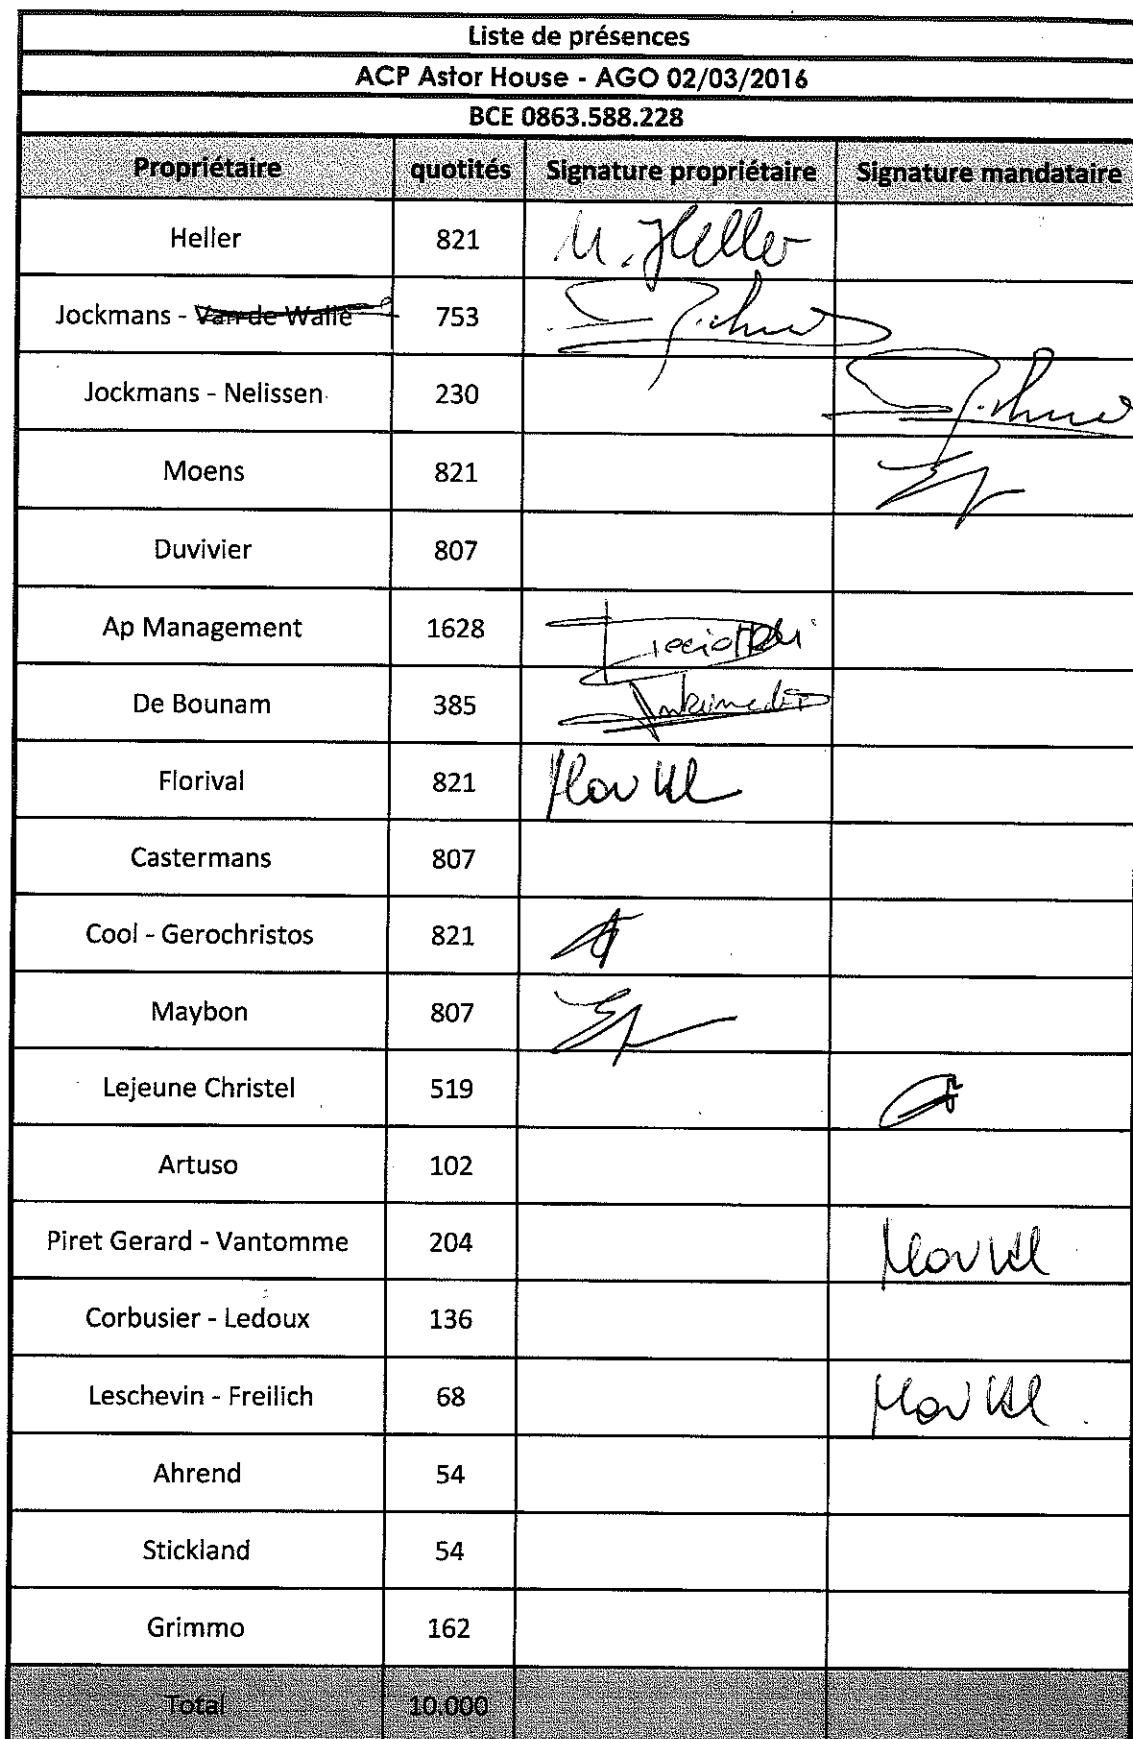 Liste de présences
ACP Astor House - AGO 02/03/2016
BCE 0863.588.228
Propriétaire quotités Signature propriétaire Signature mandataire
Heller 821 M. Heller
Jockmans - Van de Walle 753
Jockmans - Nelissen 230
Moens 821
Duvivier 807
Ap Management 1628
De Bounam 385
Florival 821
Castermans 807
Cool - Gerochristos 821
Maybon 807
Lejeune Christel 519
Artuso 102
Piret Gerard - Vantomme 204
Corbusier - Ledoux 136
Leschevin - Freilich 68
Ahrend 54
Stickland 54
Grimmo 162
Total 10.000